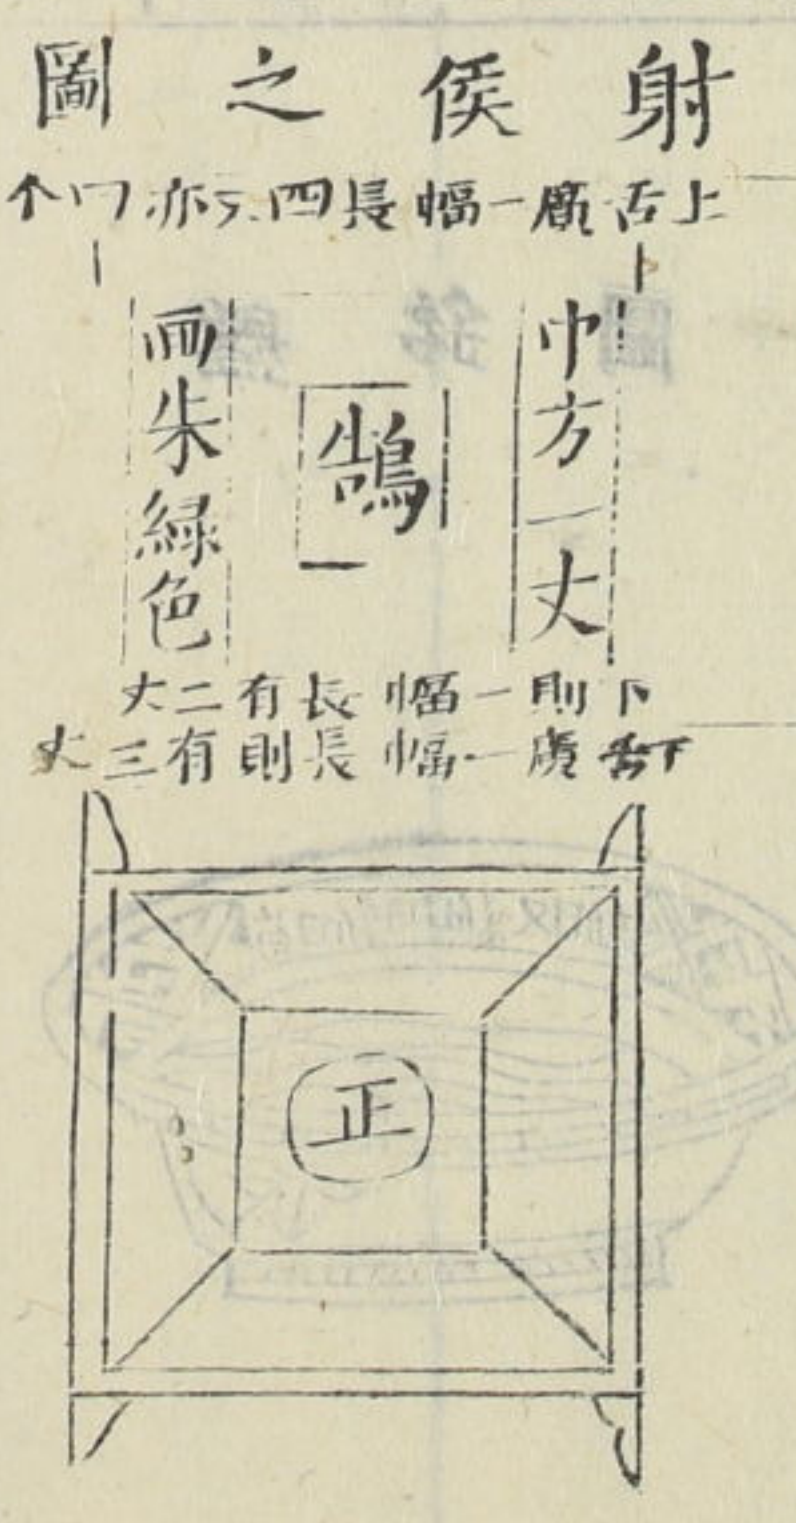 射侯之圖
上舌廣一幅長四亦个
中方一丈
鵠
朱緑色
下則一幅長有二丈
下舌廣一幅長則有三丈
正